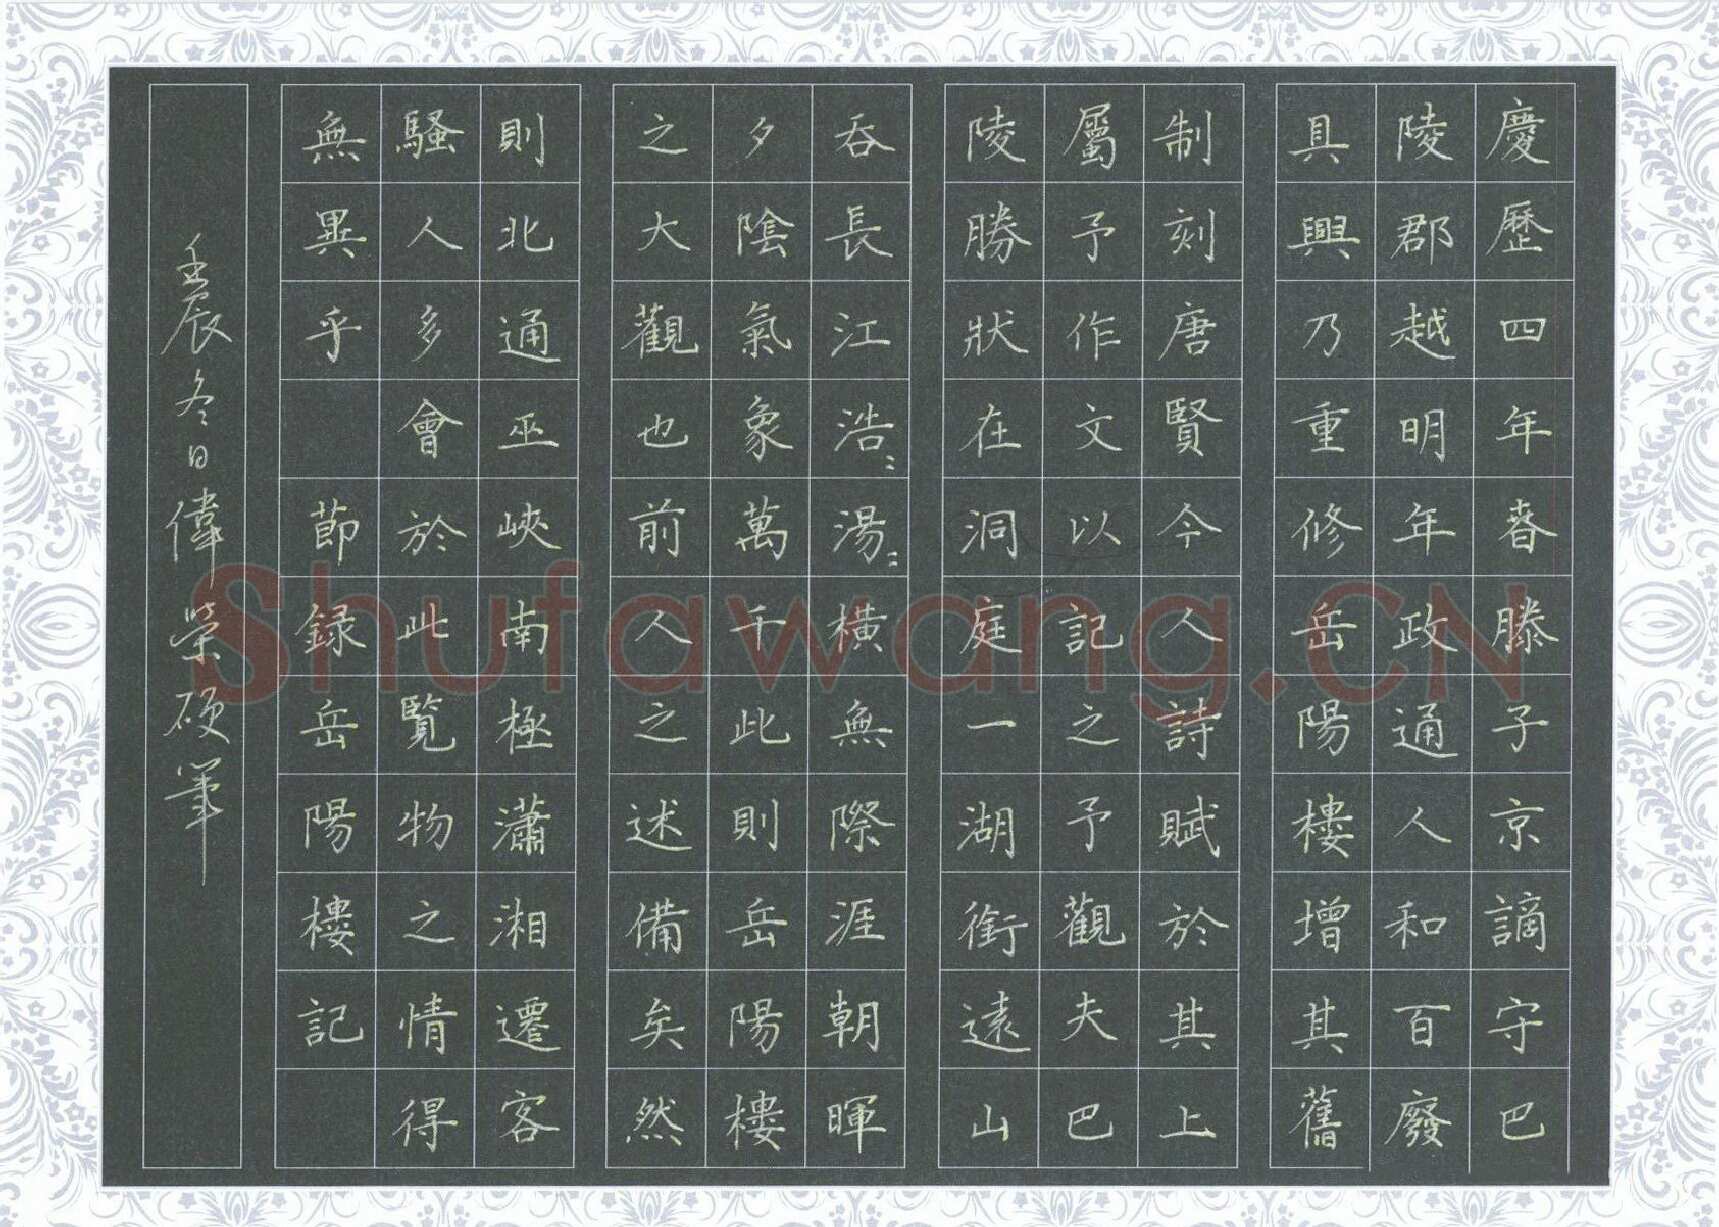 慶歷四年春滕子京謫守巴
陵郡越明年政通人和百廢
具興乃重修岳陽樓增其舊
制刻唐賢今人詩賦於其上
屬予作文以記之予觀夫巴
陵勝狀在洞庭一湖銜遠山
吞長江浩〻湯〻橫無際涯朝暉
夕陰氣象萬千此則岳陽樓
之大觀也前人之述備矣然
則北通巫峽南極瀟湘遷客
騷人多會於此覽物之情得
無異乎 節録岳陽樓記
壬辰冬日偉榮硬筆
Shufawang.CN